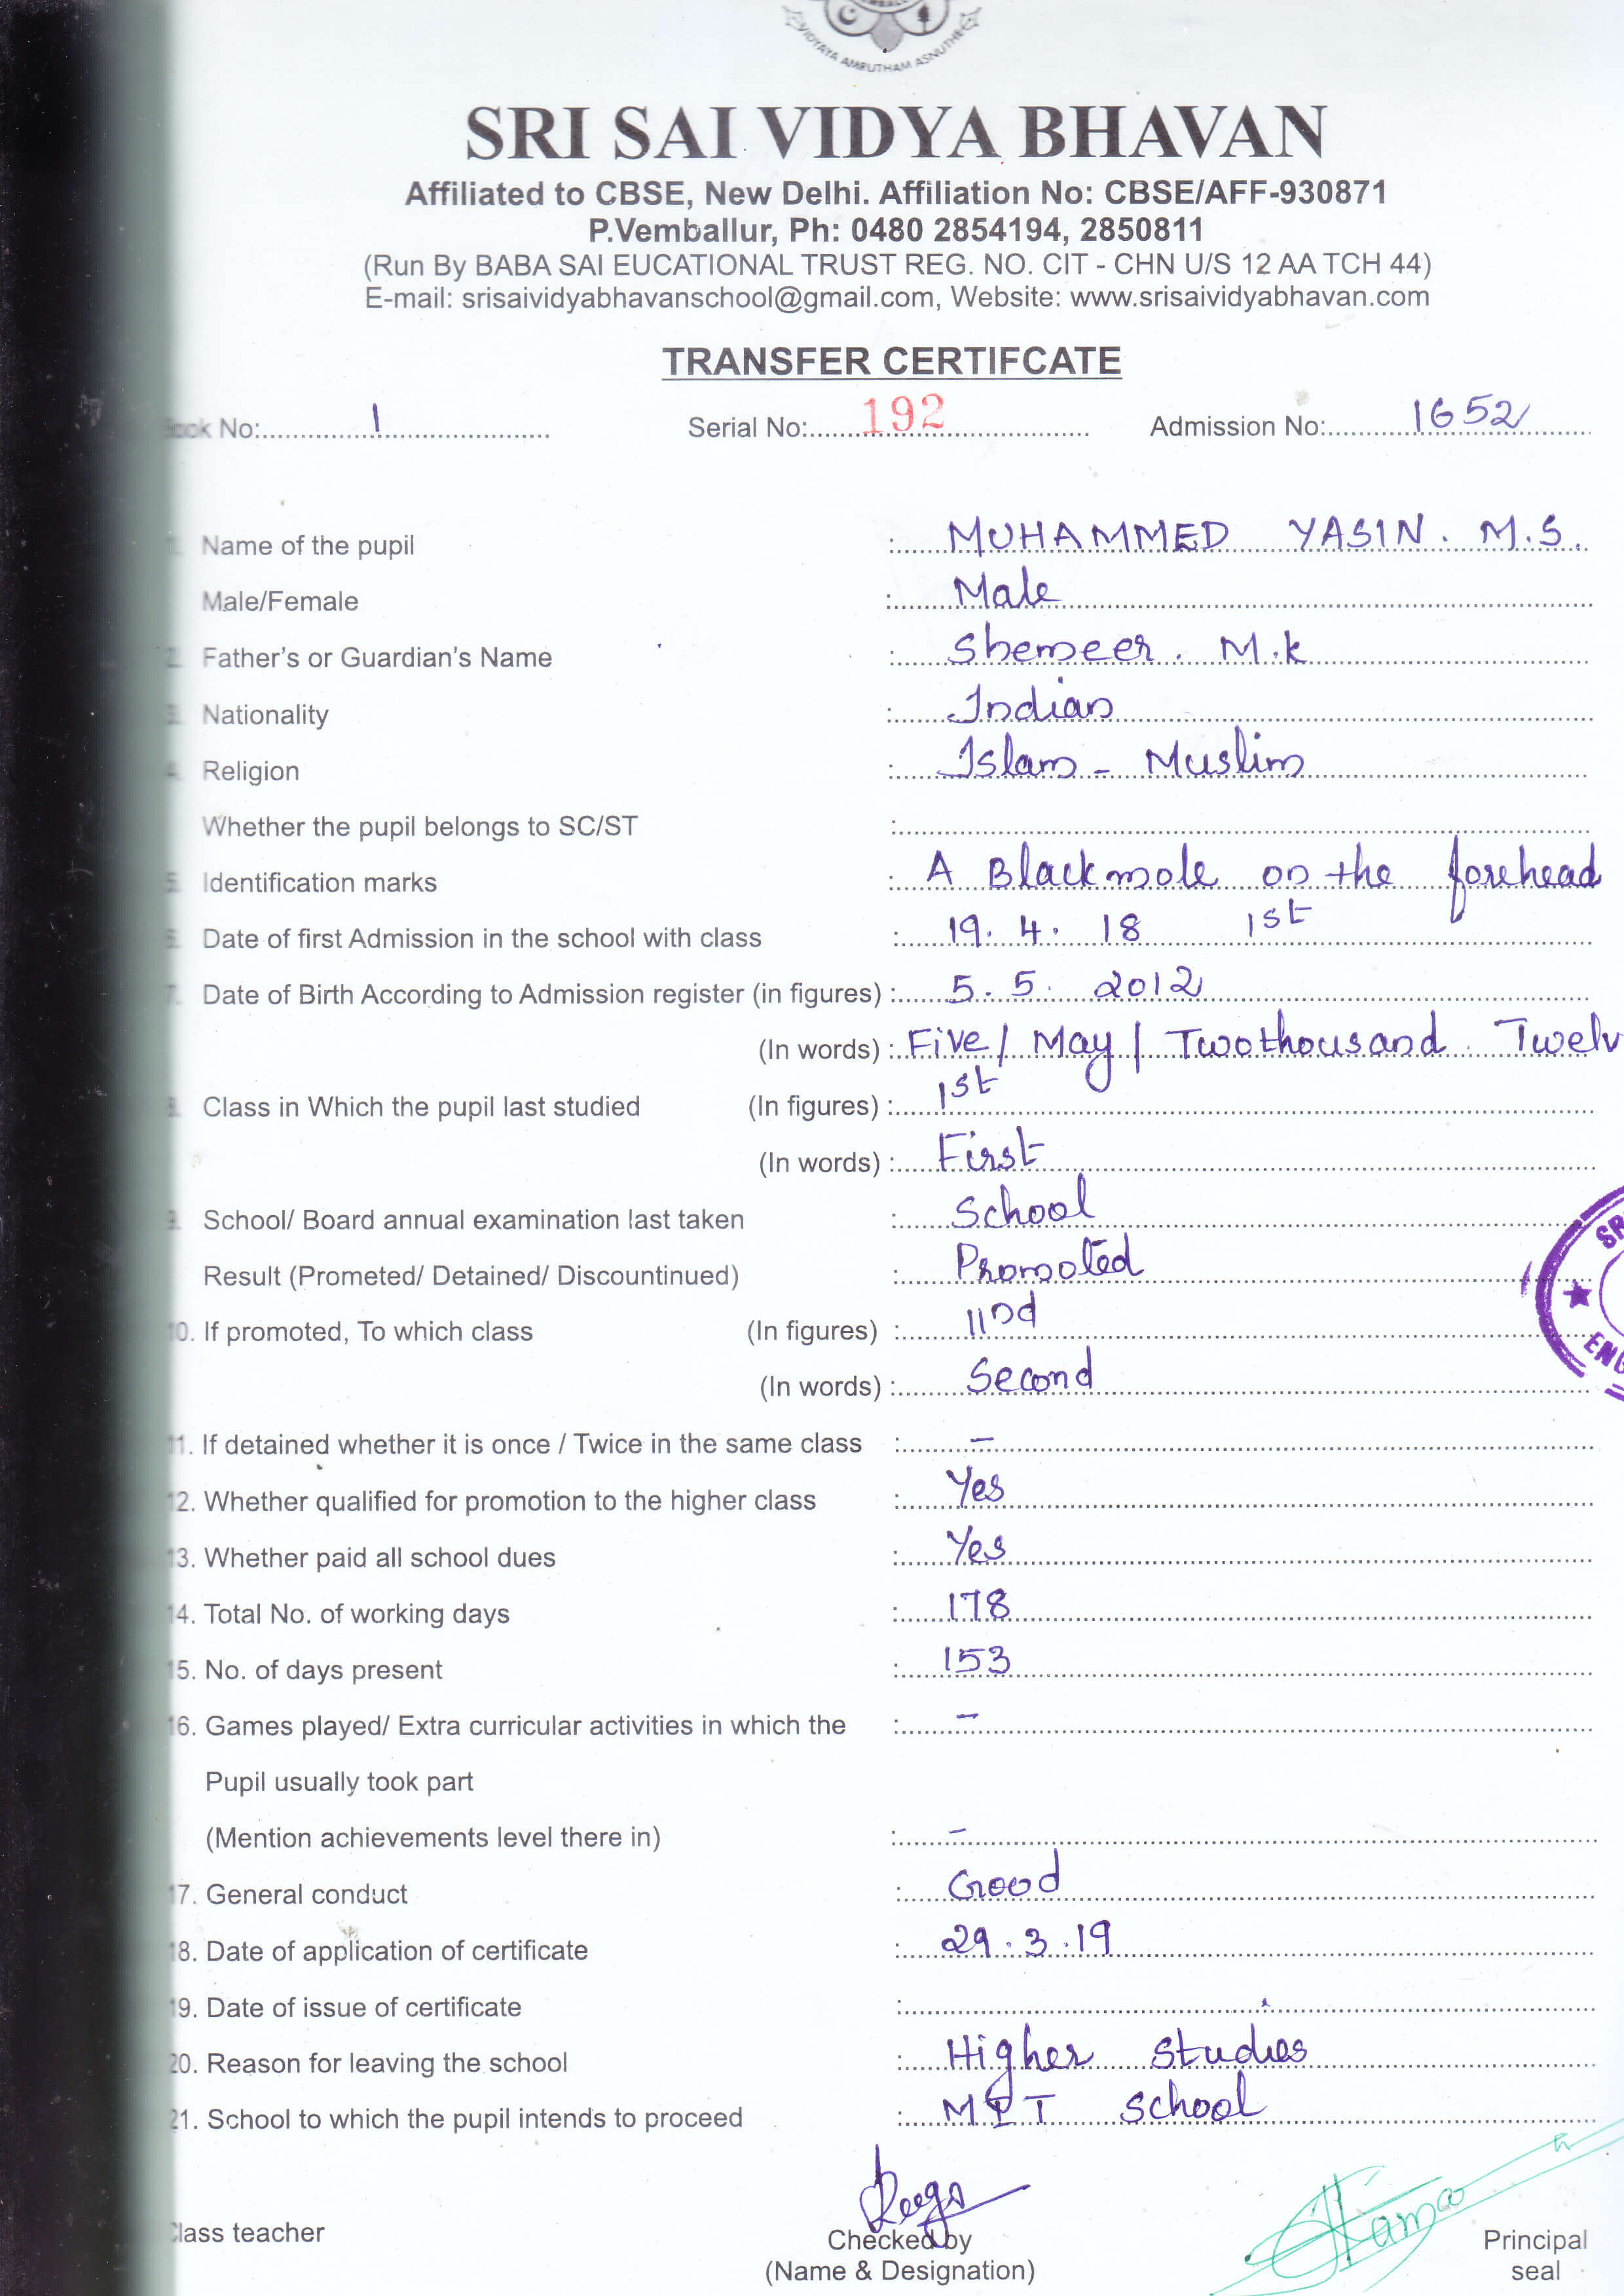 VIDYAYA AMRUTHAM ASNUTHE
SRI SAI VIDYA BHAVAN
Affiliated to CBSE, New Delhi. Affiliation No: CBSE/AFF-930871
P.Vemballur, Ph: 0480 2854194, 2850811
(Run By BABA SAI EUCATIONAL TRUST REG. NO. CIT - CHN U/S 12 AA TCH 44)
E-mail: srisaividyabhavanschool@gmail.com, Website: www.srisaividyabhavan.com
TRANSFER CERTIFCATE
Book No: 1 Serial No: 192 Admission No: 1652
1. Name of the pupil : MUHAMMED YASIN. M.S.
Male/Female : Male
2. Father's or Guardian's Name : Shemeer. M.k
3. Nationality : Indian
4. Religion : Islam - Muslim
Whether the pupil belongs to SC/ST :
5. Identification marks : A Black mole on the forehead
6. Date of first Admission in the school with class : 19. 4. 18 1st
7. Date of Birth According to Admission register (in figures) : 5. 5. 2012
(In words) : Five / May / Twothousand Twelv
8. Class in Which the pupil last studied (In figures) : 1st
(In words) : First
9. School/ Board annual examination last taken : School
Result (Prometed/ Detained/ Discountinued) : Promoted
10. If promoted, To which class (In figures) : IInd
(In words) : Second
11. If detained whether it is once / Twice in the same class : -
12. Whether qualified for promotion to the higher class : Yes
13. Whether paid all school dues : Yes
14. Total No. of working days : 178
15. No. of days present : 153
16. Games played/ Extra curricular activities in which the : -
Pupil usually took part
(Mention achievements level there in) : -
17. General conduct : Good
18. Date of application of certificate : 29.3.19
19. Date of issue of certificate :
20. Reason for leaving the school : Higher studies
21. School to which the pupil intends to proceed : School
Class teacher Checked by Principal
(Name & Designation) seal